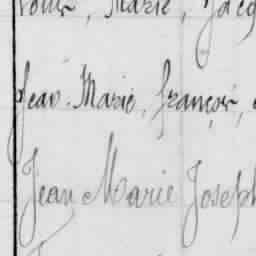 Marie, Jacq
Jean-Marie, François,
Jean Marie Joseph